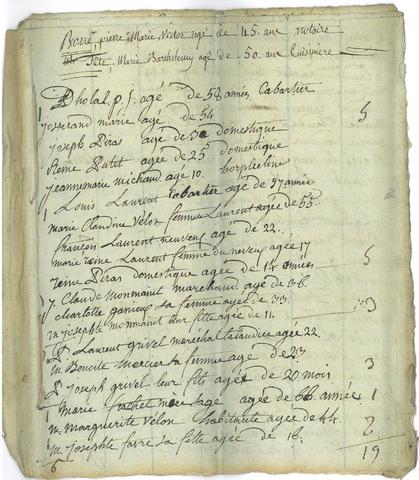 Borré pierre Marie Victor agé de 45. ans notaire
Fété, Marie Barthelemy agé de 50. ans Cuisiniere
Dholal p. f. agé de 58 années Cabartier
josserand marie agé de 54. 5
joseph Piras agé de 30 domestique
Reine Putet agée de 25 domestique
jeannemarie michaud age 10. horpheline
1 Louis Laurent Cabartier agé de 57 année
marie Claudine Velon femme Laurent agée de 55.
françois Laurent neuveux agé de 22.
marie reine Laurent femme du neveux agée 17
reine Piras domestique agée de 14 années 5
j. Claude Monmainet marchand agé de 36.
Charlotte ganieux sa femme agée de 33. 3
m josephte monmainet leur fille agée de 11.
P. Laurent grivel maréchal taiandier agée 22.
m. Benoite mercier sa femme agé de 23. 3
P joseph grivel leur fils agée de 20 mois.
1 Marie frachet mère agé de 66 années 1
m. Marguerite Velon habitante agée de 44. 2
m josephte favre sa fille agée de 16.
6 19